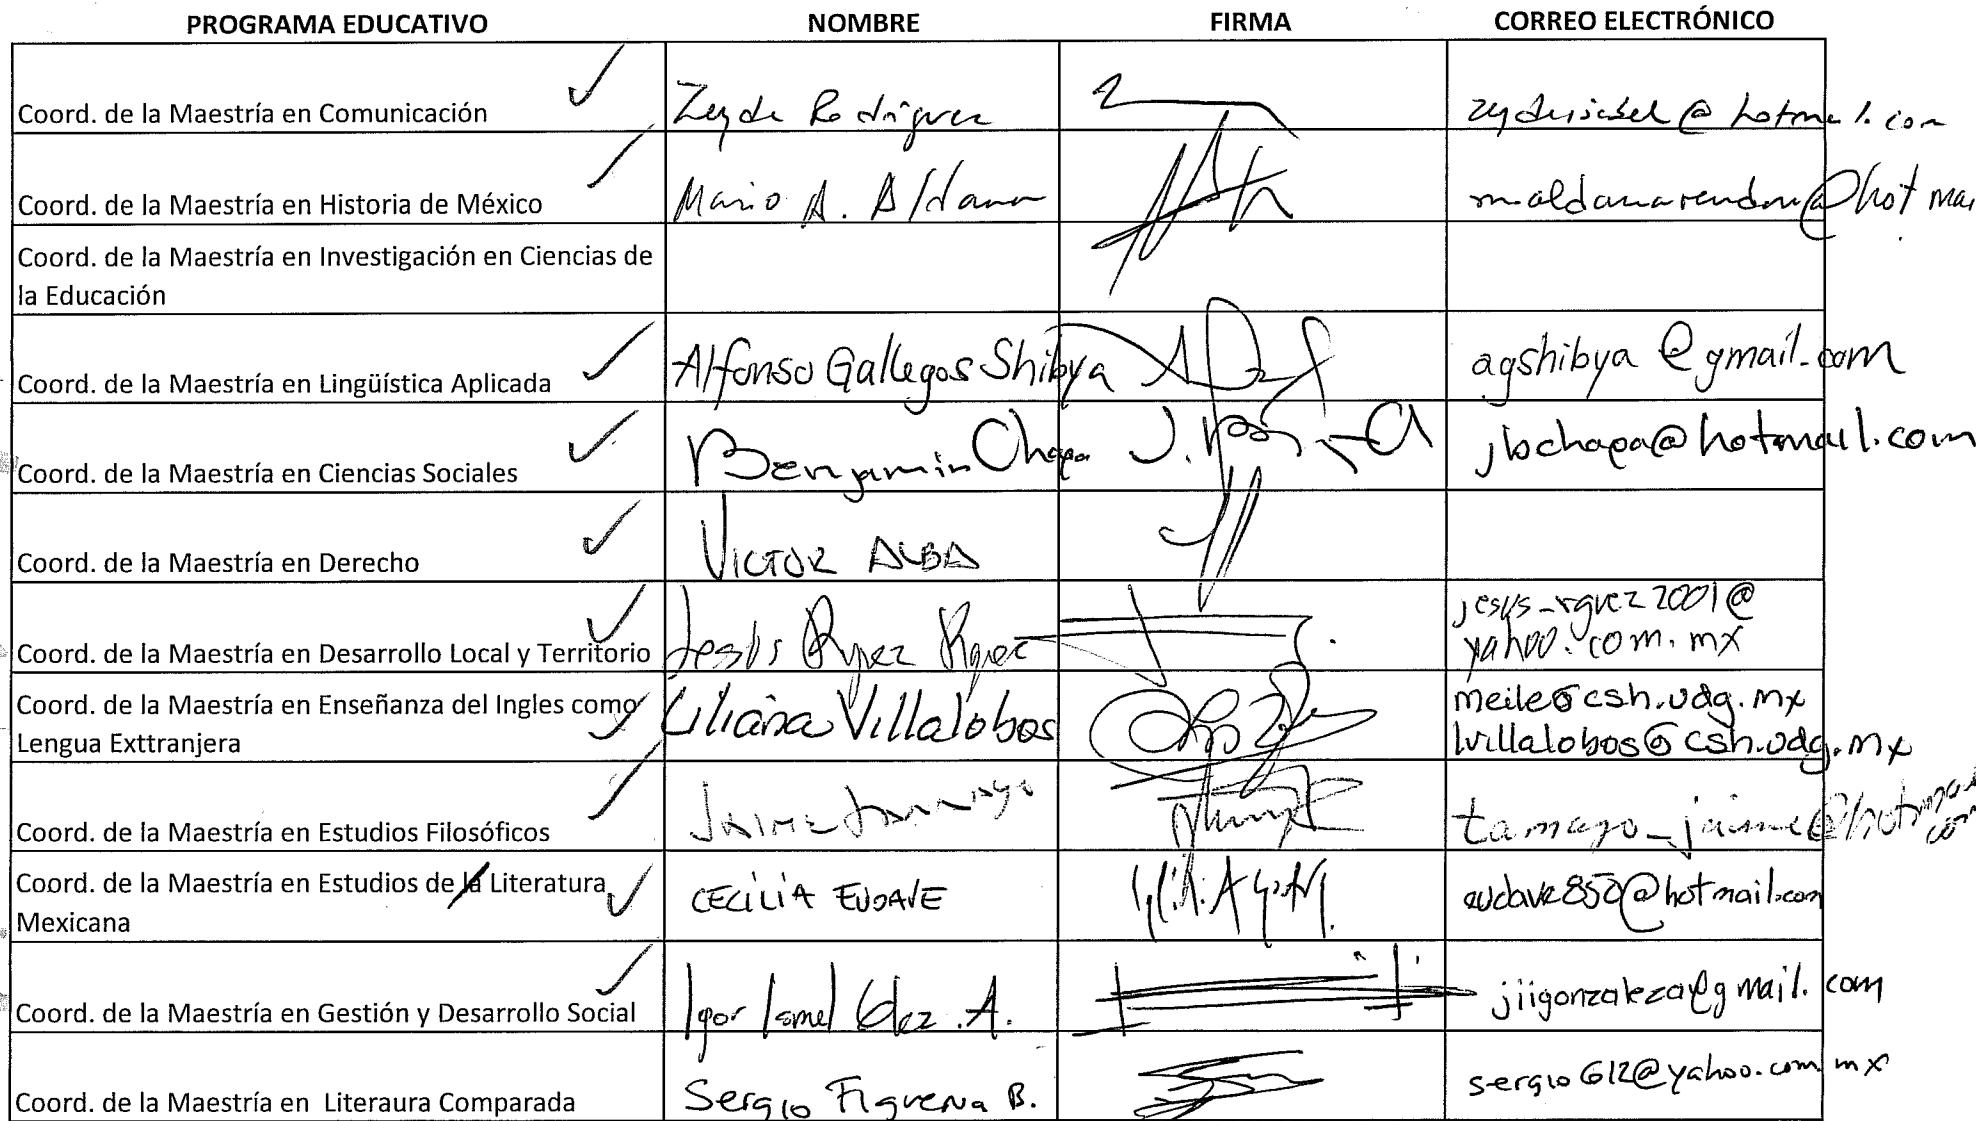 PROGRAMA EDUCATIVO NOMBRE FIRMA CORREO ELECTRÓNICO
Coord. de la Maestría en Comunicación Zeyda Rodríguez zydeisabel@hotmail.com
Coord. de la Maestría en Historia de México Mario A. Aldana maldanarendon@hotmai
Coord. de la Maestría en Investigación en Ciencias de
la Educación
Coord. de la Maestría en Lingüística Aplicada Alfonso Gallegos Shibya agshibya@gmail.com
Coord. de la Maestría en Ciencias Sociales Benjamin Chapa jbchapa@hotmail.com
Coord. de la Maestría en Derecho VICTOR ALBA
jesus_rguez2001@
Coord. de la Maestría en Desarrollo Local y Territorio Jesús Rguez Rguez yahoo.com.mx
Coord. de la Maestría en Enseñanza del Ingles como Liliana Villalobos meile@csh.udg.mx
Lengua Exttranjera lvillalobos@csh.udg.mx
Coord. de la Maestría en Estudios Filosóficos Jaime Tamayo tamayo_jaime@hotmail
com
Coord. de la Maestría en Estudios de la Literatura CECILIA EUDAVE eudave850@hotmail.com
Mexicana
Coord. de la Maestría en Gestión y Desarrollo Social Igor Ismel Glez. A. jiigonzaleza@gmail.com
Coord. de la Maestría en Literaura Comparada Sergio Figueroa B. sergio612@yahoo.com.mx